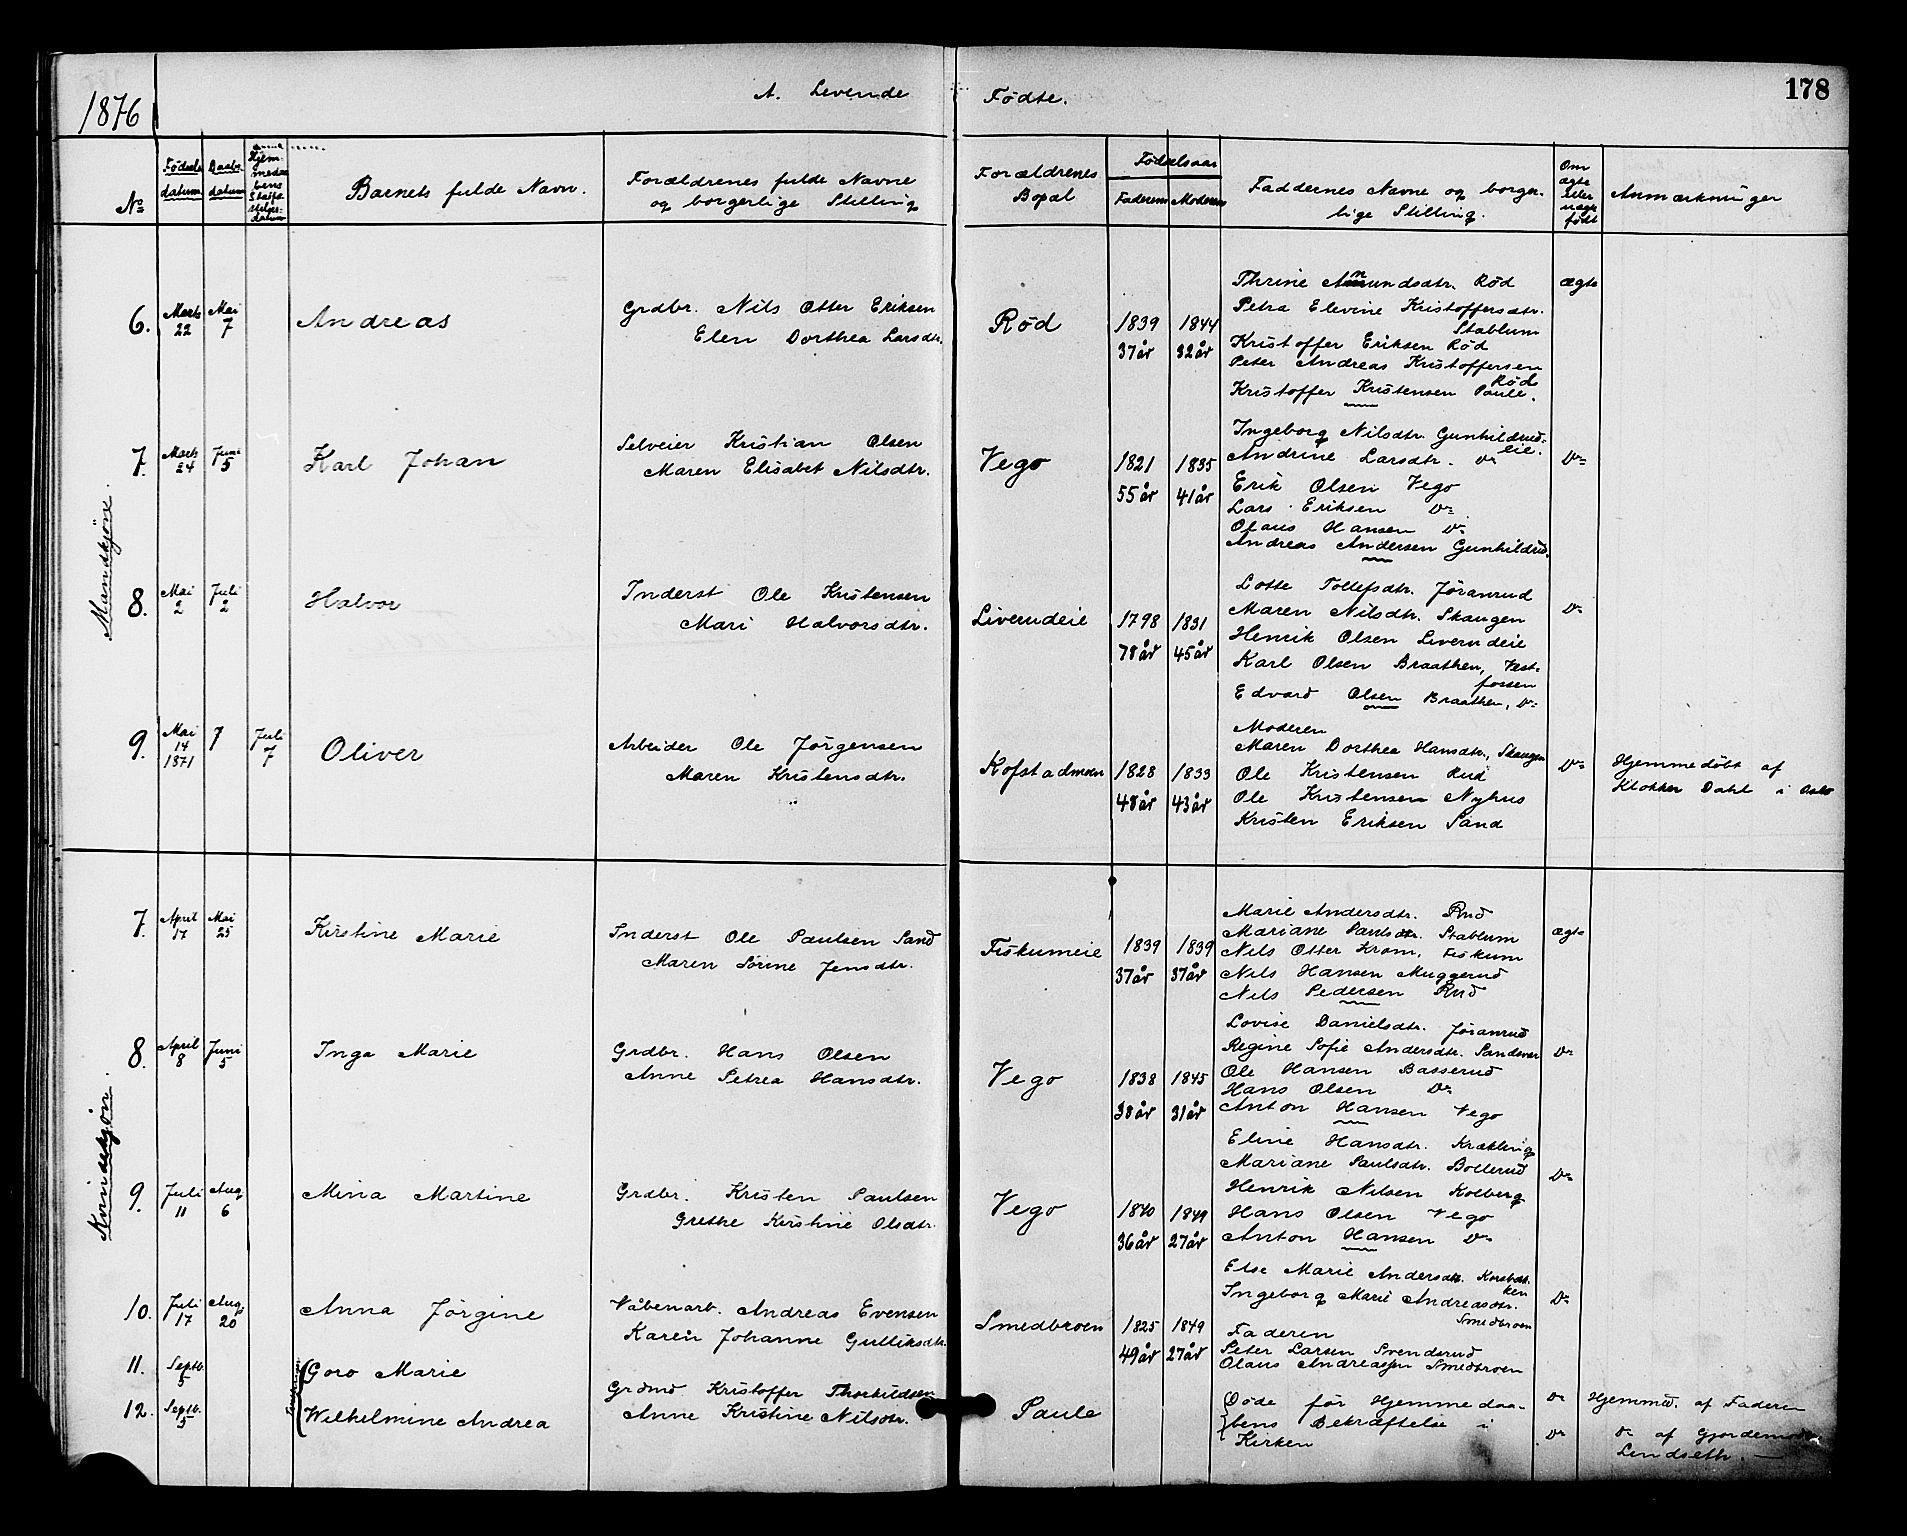 1876
A. Levende Fødte.
178
No
Fødsels datum
Daabs datum
Hjemmedaabens datum
Barnets fulde Navn.
Forældrenes fulde Navne
og borgerlige Stilling
Forældrenes
Bopæl
Fødselsaar
Faderens Moderens
Faddernes Navne og borger-
lige Stilling.
Om ægte eller uægte født
Anmærkninger
Mandkjøn.
6. Marts 22 Mai 7
Andreas
Grdbr. Nils Otter Eriksen
Elen Dorthea Larsdtr.
Rød
1839 1844
37år 32år
Thrine Amundsdtr. Rød
Petra Elevine Kristoffersdtr.
Stablum
Kristoffer Eriksen Rød
Peter Andreas Kristoffersen
Rød
Kristoffer Kristensen Paule.
ægte
7. Marts 24 Juni 5
Karl Johan
Selveier Kristian Olsen
Maren Elisabet Nilsdtr.
Vego
1821 1835
55år 41år
Ingeborg Nilsdtr. Gunhildrud-
eie.
Andrine Larsdtr. Do
Erik Olsen Vego
Lars Eriksen Do
Olaus Hansen Do
Andreas Andersen Gunhildrud.
Do
8. Mai 2 Juli 2
Halvor
Inderst Ole Kristensen
Mari Halvorsdtr.
Liverudeie
1798 1831
78år 45år
Lotte Tollefsdtr. Jøranrud
Maren Nilsdtr. Skaugen
Henrik Olsen Liverudeie
Karl Olsen Braathen, Vest-
fossen
Edvard Olsen Braathen, Do
Do
9. Mai 14 1871 7 Juli 7
Oliver
Arbeider Ole Jørgensen
Maren Kristensdtr.
Kofstadmoen
1828 1833
48år 43år
Moderen
Maren Dorthea Hansdtr., Skaugen
Ole Kristensen Rud
Ole Kristensen Nyhus
Kristen Eriksen Sand
Do
Hjemmedøbt af
Klokker Dahl i
Kvindekjøn.
7. April 17 Mai 25
Kirstine Marie
Inderst Ole Paulsen Sand
Maren Sørine Jensdtr.
Fiskumeie
1839 1839
37år 37år
Marie Andersdtr. Rud
Mariane Paulsdtr. Stablum
Nils Otter Krom, Fiskum
Nils Hansen Muggerud
Nils Pedersen Rud
ægte
8. April 8 Juni 5
Inga Marie
Grdbr. Hans Olsen
Anne Petrea Hansdtr.
Vego
1838 1845
38år 31år
Lovise Danielsdtr. Jøranrud
Regine Sofie Andersdtr. Sandsvær
Ole Hansen Basserud
Hans Olsen Do
Anton Hansen Vego
Do
9. Juli 11 Aug 6
Mina Martine
Grdbr. Kristen Paulsen
Grethe Kirstine Olsdtr.
Vego
1840 1849
36år 27år
Eline Hansdtr. Krækling
Mariane Paulsdtr. Bollerud
Henrik Nilsen Kolberg
Hans Olsen Vego
Anton Hansen Do
Do
10. Juli 17 Aug. 20
Anna Jørgine
Våbenarb. Andreas Evensen
Karen Johanne Gulliksdtr.
Smedbroen
1825 1849
49år 27år
Else Marie Andersdtr. Korsbak-
ken
Ingeborg Marie Andreasdtr.
Smedbroen
Faderen
Peter Larsen Svendsrud
Olaus Andreassen Smedbroen
Do
11. Septb. 5
Goro Marie
12. Septb. 5
Wilhelmine Andrea
Grdmd Kristoffer Thorkildsen
Anne Kristine Nilsdtr.
Paule
Døde før Hjemmedaa-
bens Bekræftelse i
Kirken
Do
Do
Hjemmd. af Faderen
Do af Gjordemoder
Lindseth.